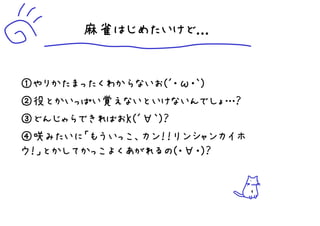 麻雀はじめたいけど...
①やりかたまったくわからないお(´・ω・`)
②役とかいっぱい覚えないといけないんでしょ…?
③どんじゃらできればおk(´∀`)?
④咲みたいに「もういっこ、カン!!リンシャンカイホ
ウ!」とかしてかっこよくあがれるの(・∀・)?